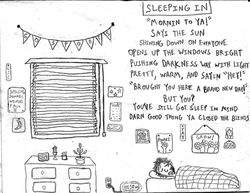 SLEEPING IN
"MORNIN TO YA!"
SAYS THE SUN
SHINING DOWN ON EVERYONE
OPENS UP THE WINDOWS BRIGHT
PUSHING DARKNESS WAY WITH LIGHT
PRETTY, WARM, AND SAYIN "HEY!"
"BROUGHT YOU HERE A BRAND NEW DAY!"
BUT YOU?
YOU'VE STILL GOT SLEEP IN MIND
DARN GOOD THING YA CLOSED THE BLINDS